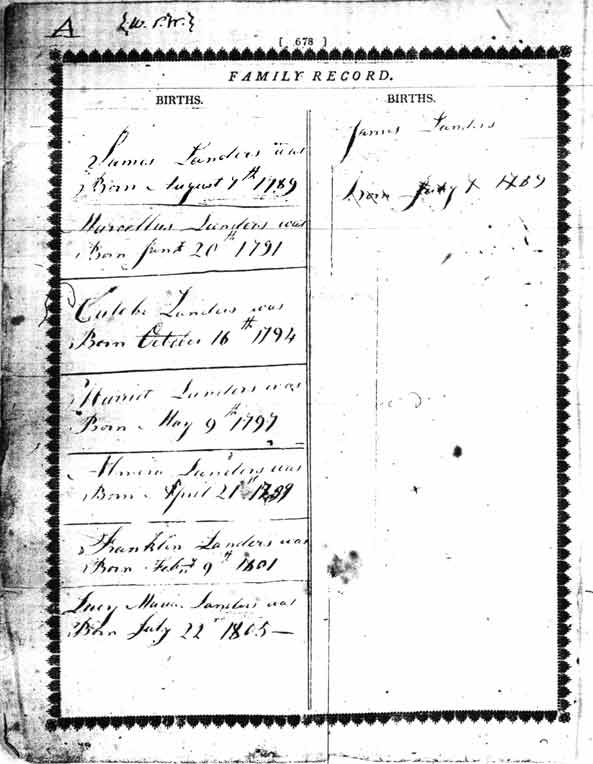 A {W. P. W.}
[ 678 ]
FAMILY RECORD.
BIRTHS.
James Landers was
Born August 7th 1789
Marcellus Landers was
Born June 20th 1791
Caleb Landers was
Born October 16th 1794
Harriot Landers was
Born May 9th 1797
Almira Landers was
Born April 21st 1799
Franklin Landers was
Born Feby 9th 1801
Lucy Maria Landers was
Born July 22nd 1805
BIRTHS.
James Landers
born